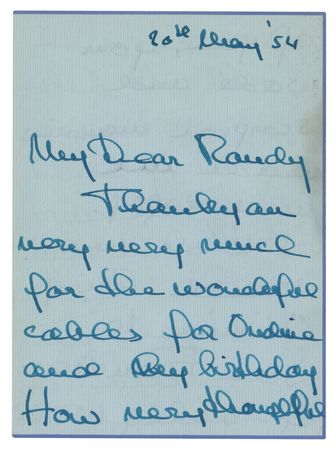 20th May '54
My Dear Randy
Thankyou
very very much
for the wonderful
cables for Ondine
and my birthday
How very thoughtful